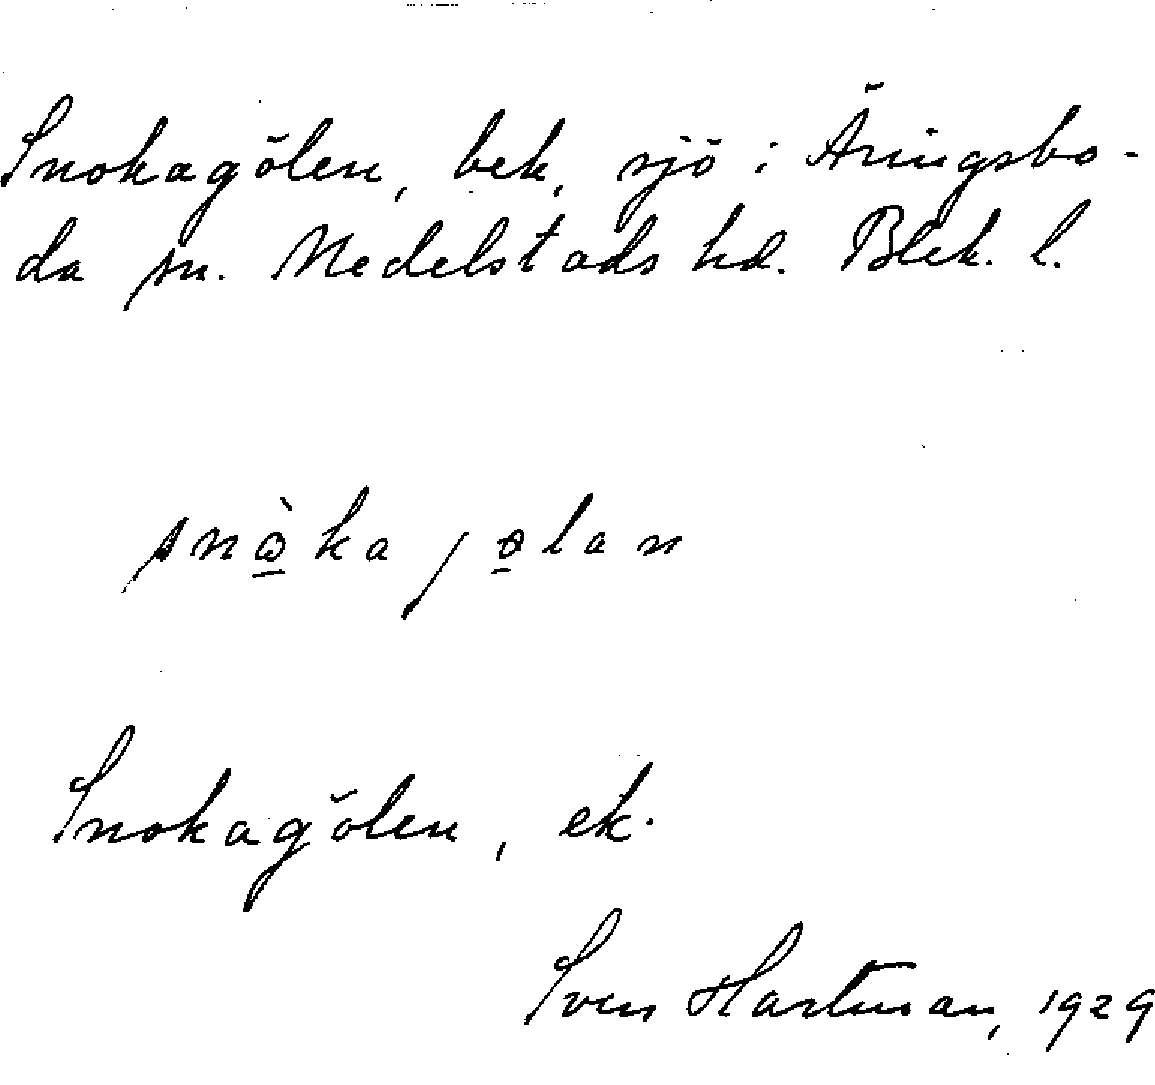 Snokagölen, bek, sjö i Äringsbo-
da sn. Medelstads hd. Blek. l.
snὼ̲ka jɵ̲lan
Snokagölen, ek.
Sven Hartman, 1929